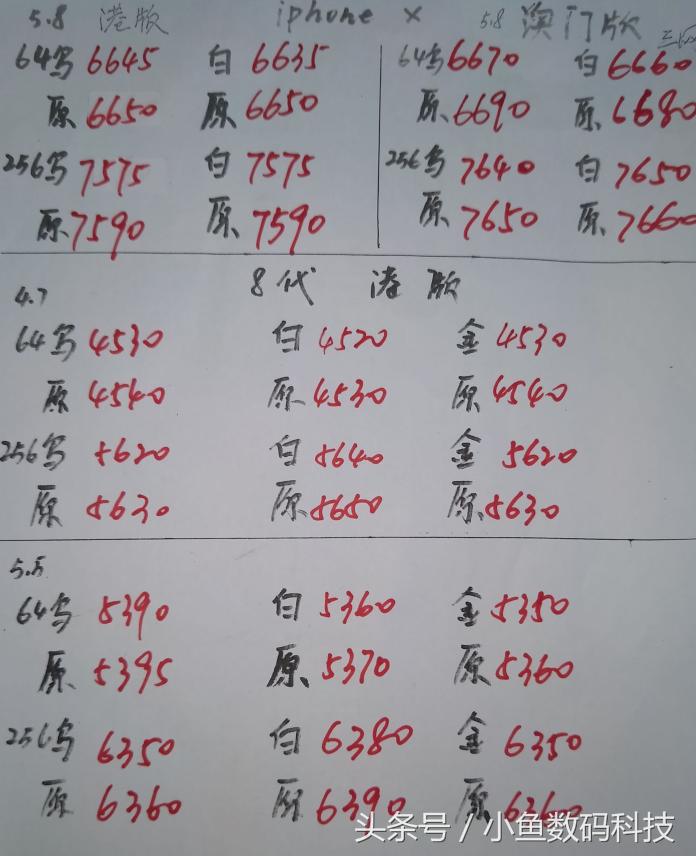 5.8 港版 iphone X 5.8 澳门版 三网
64乌 6645 白 6635 64乌 6670 白 6660
原 6650 原 6650 原 6690 原 6680
256乌 7575 白 7575 256乌 7640 白 7650
原 7590 原 7590 原 7650 原 7660
4.7 8代 港版
64乌 4530 白 4520 金 4530
原 4540 原 4530 原 4540
256乌 5620 白 5640 金 5620
原 5630 原 5650 原 5630
5.5
64乌 5390 白 5360 金 5350
原 5395 原 5370 原 5360
256乌 6350 白 6380 金 6350
原 6360 原 6390 原 6360
头条号 / 小鱼数码科技